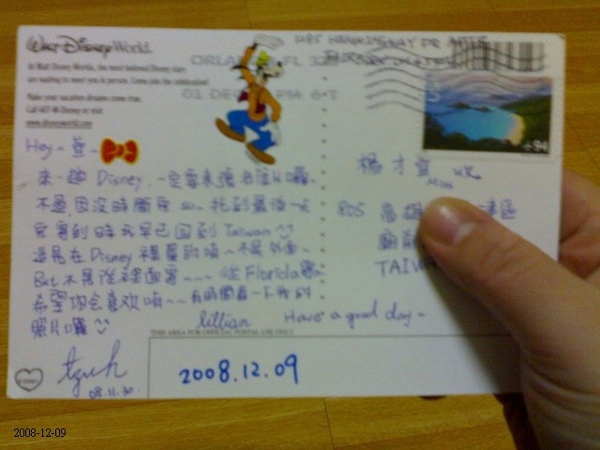 Walt Disney World.
At Walt Disney Worlds, the most beloved Disney stars
are waiting to meet you in person. Come join the celebration!
Make your vacation dreams come true.
Call 407-W-Disney or visit
www.disneyworld.com
ORLANDO FL 32
01 DEC PM 6 T
94
Hey~ 萱~
來一趟 Disney, 一定要來張名信片囉~
不過因沒時間寄 拖到最後一天
安寄到時我早已回到 Taiwan ^^
這是在 Disney 裡買的唷~不是外面~
But 不是從裡面寄~~~ 從 Florida 寄~
希望你会喜欢唷~~ 有時間看一下我的
照片囉
lillian
Have a good day~
08.11.30
楊才萱
Miss
805 高雄
TAIWA
THIS AREA FOR OFFICIAL POSTAL USE ONLY
2008.12.09
2008-12-09